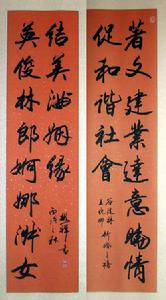 著文建業達意暢情
促和諧社會
新婚之禧
英俊林郎婀娜淑女
結美滿姻緣